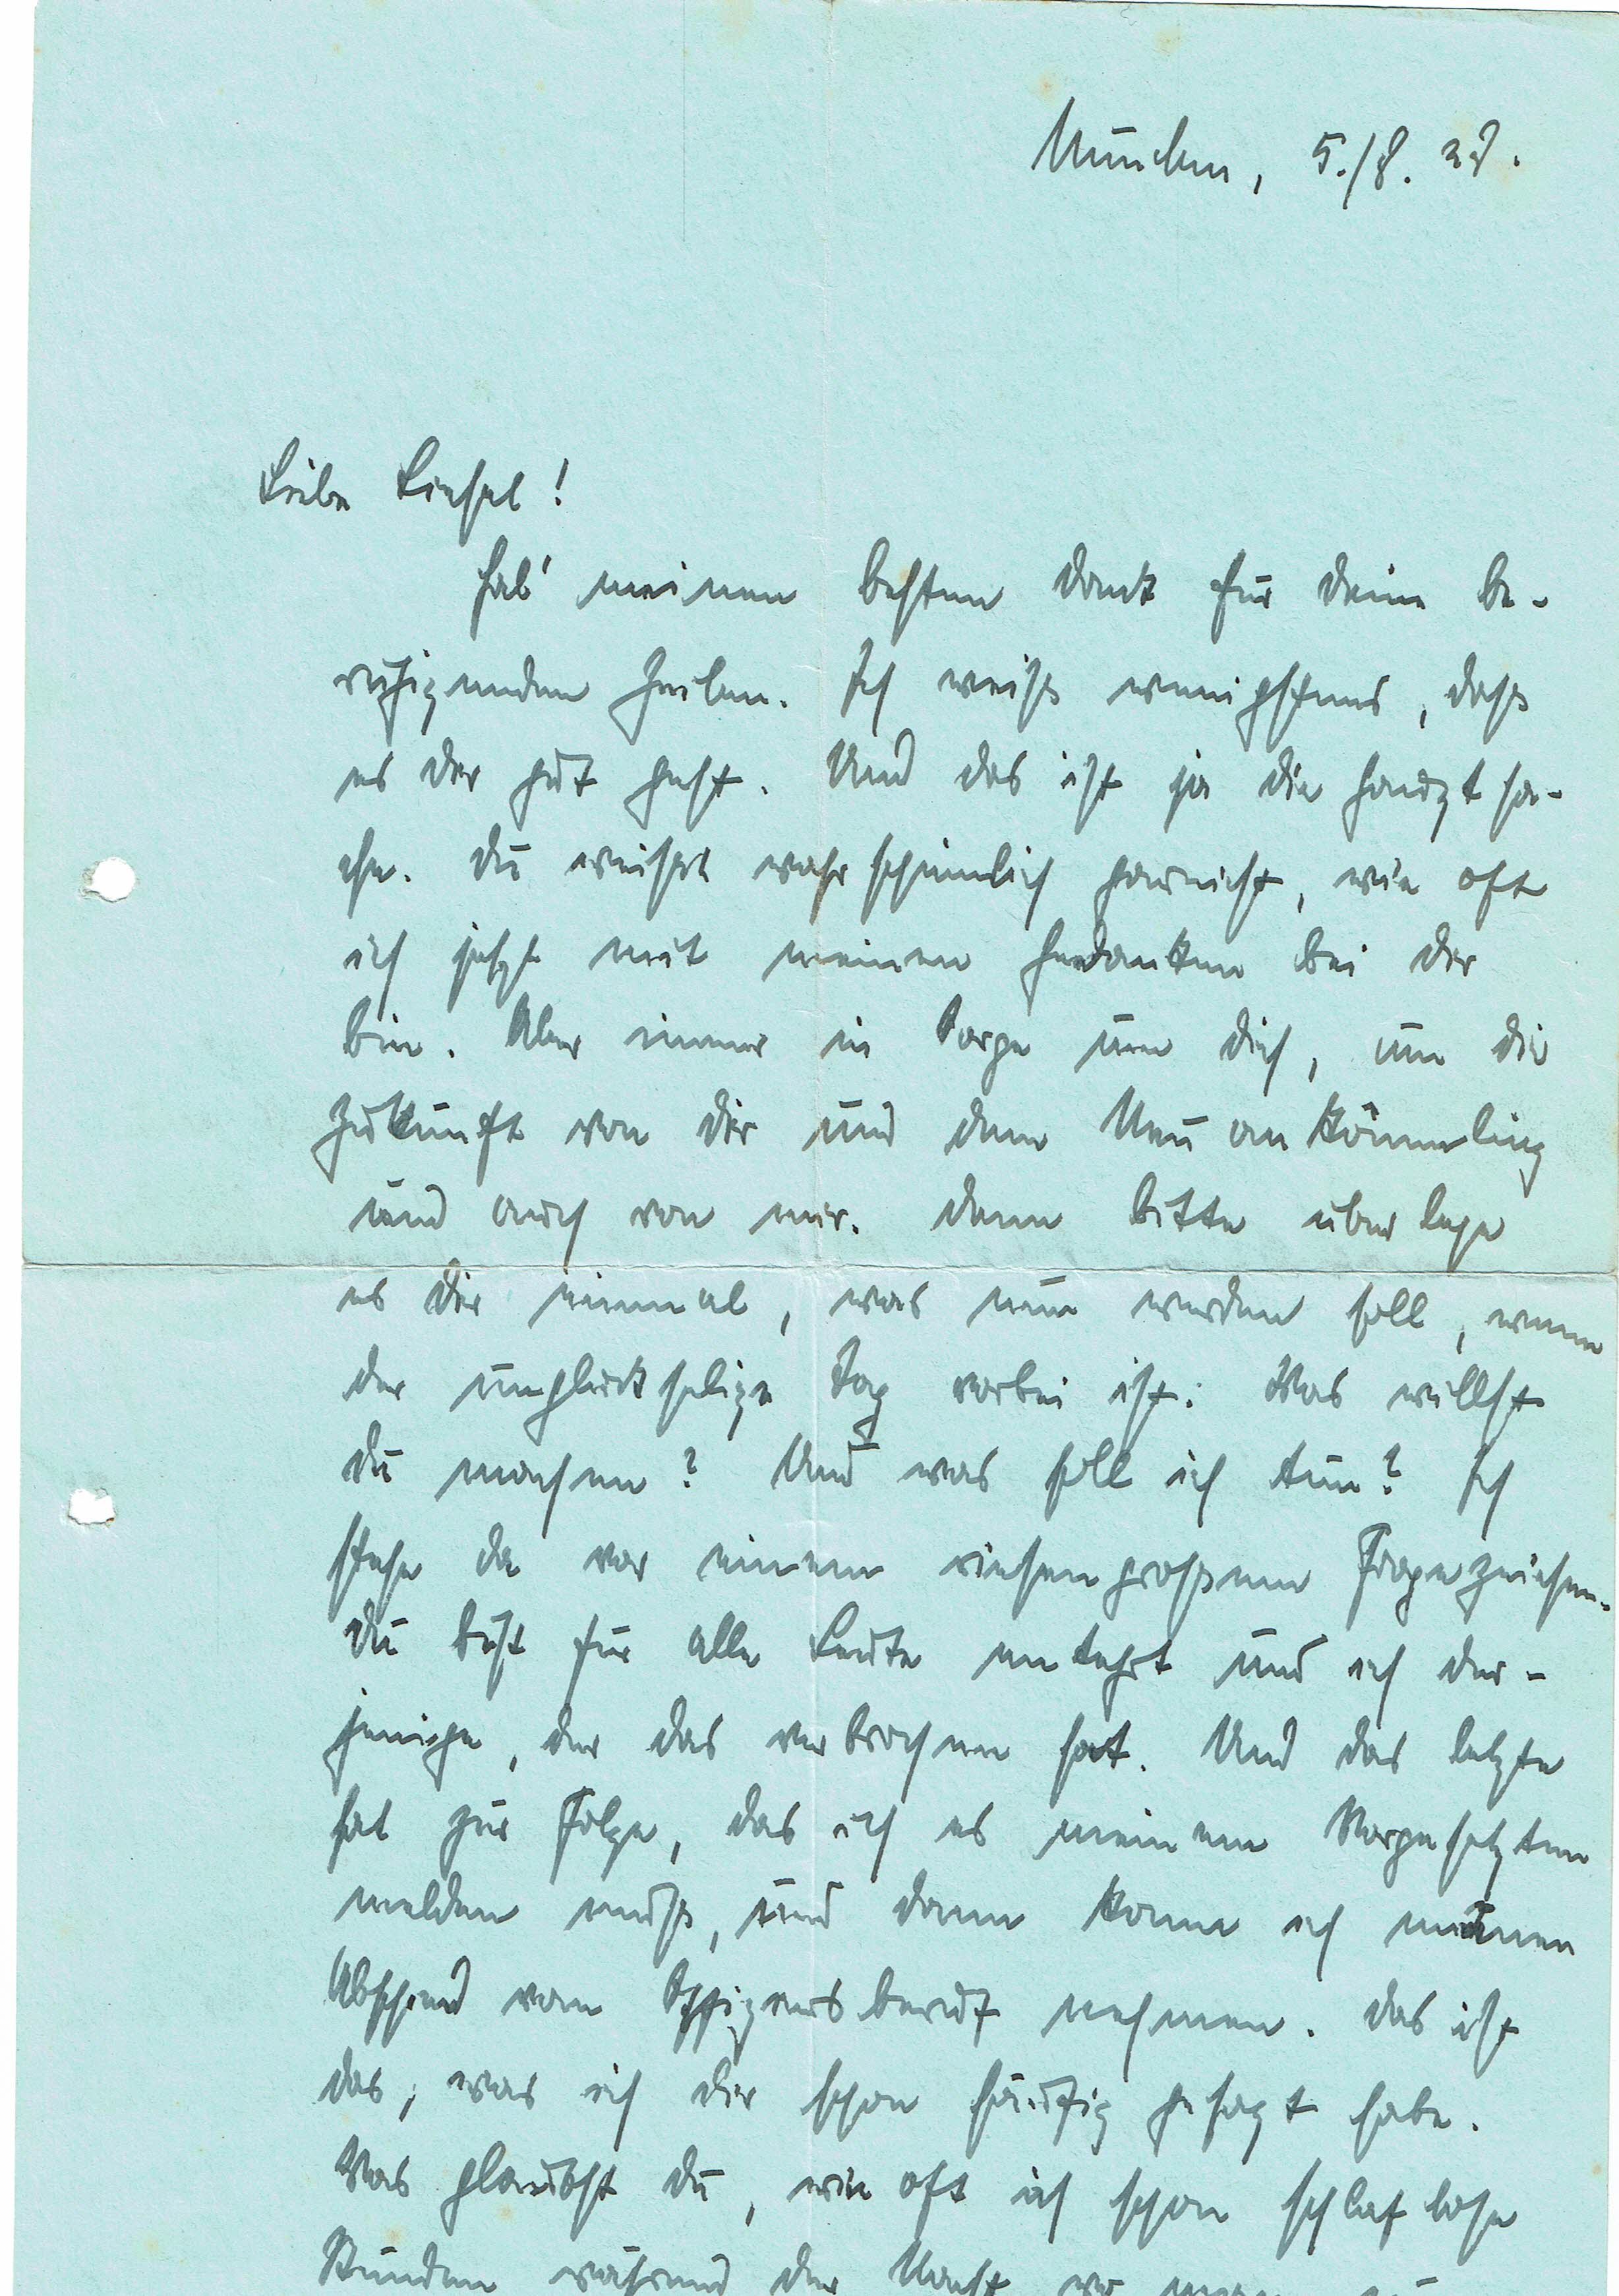 München, 5./8. 27.
Liebe Liesel!
Hab' meinen besten Dank für Deine be-
ruhigenden Zeilen. Ich weiss wenigstens, dass
es Dir gut geht. Und das ist ja die Hauptsa-
che. Du weisst wahrscheinlich garnicht, wie oft
ich jetzt mit meinen Gedanken bei Dir
bin. Aber immer in Sorge um Dich, um die
Zukunft von Dir und dem Neuankömmling
und auch von mir. Denn bitte überlege
es Dir einmal, was nun werden soll, wenn
der unglückselige Tag vorbei ist: Was willst
Du machen? Und was soll ich tun? Ich
stehe da vor einem riesengrossen Fragezeichen.
Du bist für alle Leute entehrt und ich der-
jenige, der das verbrochen hat. Und das letzte
hat zur Folge, das ich es meinem Vorgesetzten
melden muss, und dann kann ich meinen
Abschied vom Offiziersberuf nehmen. Das ist
das, was ich Dir schon häufig gesagt habe.
Was glaubst Du, wie oft ich schon schlaflose
Stunden während der Nacht